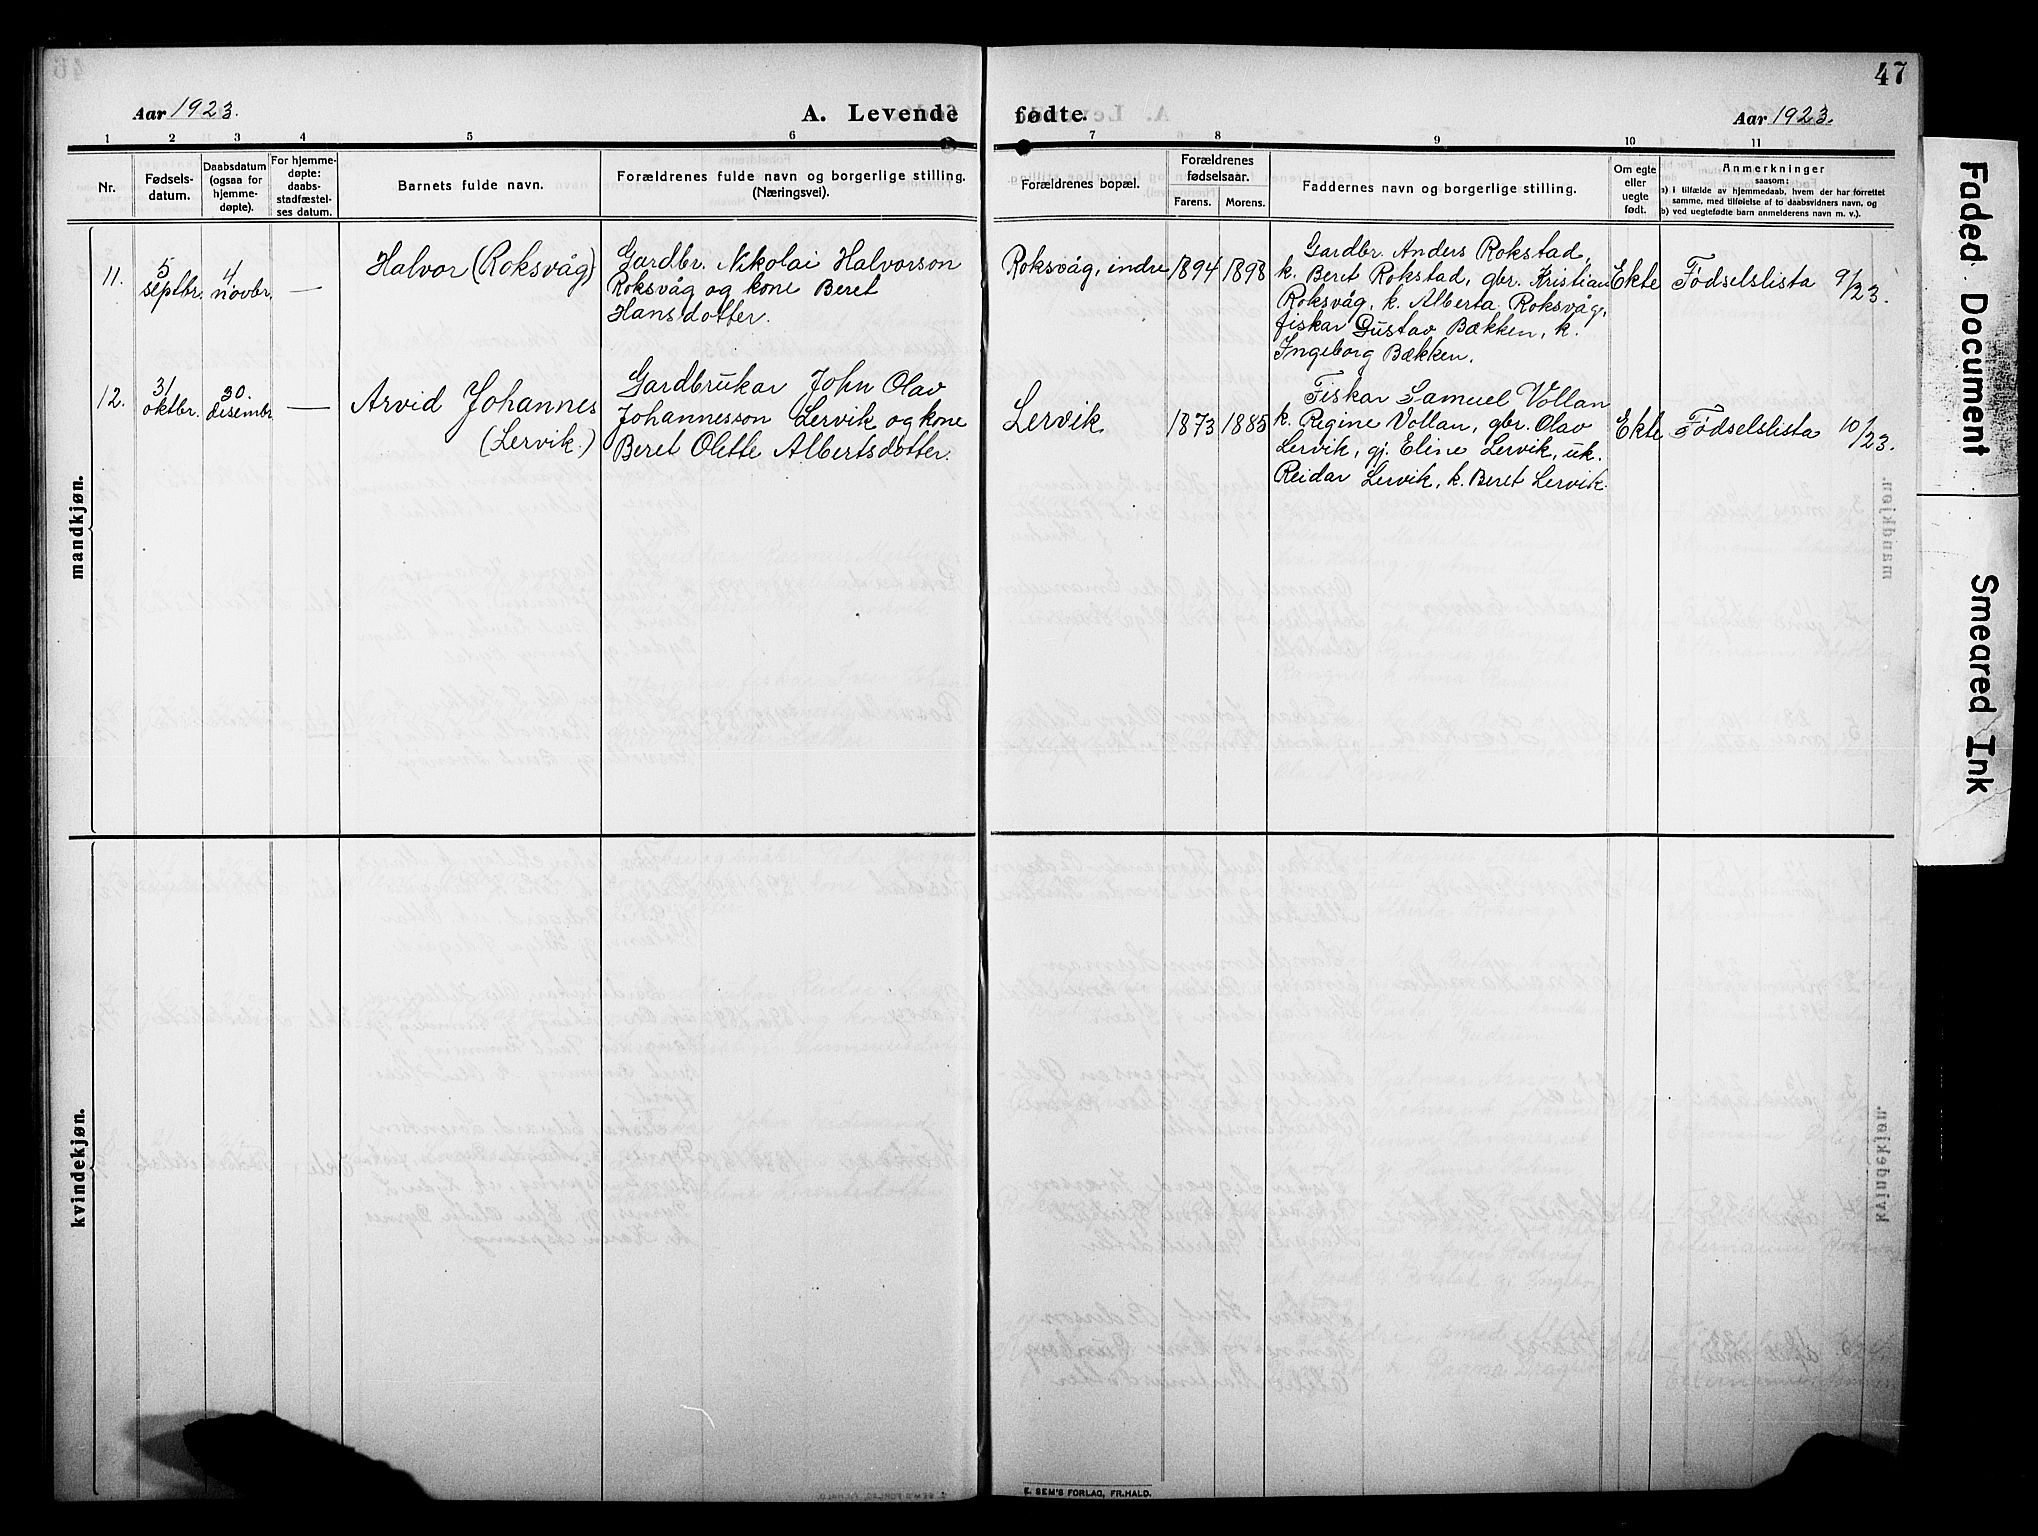 47
Aar 1923.
A. Levende fødte.
Aar 1923.
1 2 3 4 5 6 7 8 9 10 11
Nr.
Fødsels-
datum.
Daabsdatum
(ogsaa for
hjemme-
døpte).
For hjemme-
døpte:
daabs-
stadfæstel-
ses datum.
Barnets fulde navn.
Forældrenes fulde navn og borgerlige stilling.
(Næringsvei).
Forældrenes bopæl.
Forældrenes
fødselsaar.
Farens. Morens.
Faddernes navn og borgerlige stilling.
Om egte
eller
uegte
født.
Anmerkninger
saasom:
a) i tilfælde av hjemmedaab, hvem der har forrettet
samme, med tilføielse af to daabsvidners navn, og
b) ved uegtefødte barn anmelderens navn m. v.).
mandkjøn.
11.
5
septbr.
4
novbr.
—
Halvor (Roksvåg)
Gardbr. Nikolai Halvorson
Roksvåg og kone Beret
Hansdotter.
Roksvåg, indre
1894
1898
Gardbr. Anders Rokstad,
k. Beret Rokstad, gbr. Kristian
Roksvåg, k. Alberta Roksvåg,
fiskar Gustav Bækken, k.
Ingeborg Bækken.
Ekte
Fødselslista 9/23.
12.
31
oktbr.
30.
desembr.
—
Arvid Johannes
(Lervik.)
Gardbrukar John Olav
Johannesson Lervik og kone
Beret Olette Albertsdotter.
Lervik
1873
1885
Fiskar Samuel Vollan
k. Regine Vollan, gbr. Olav
Lervik, gj. Eline Lervik, uk.
Reidar Lervik, k. Beret Lervik.
Ekte
Fødselslista 10/23.
kvindekjøn.
E. SEM'S FORLAG, FR.HALD.
Faded Document
Smeared Ink